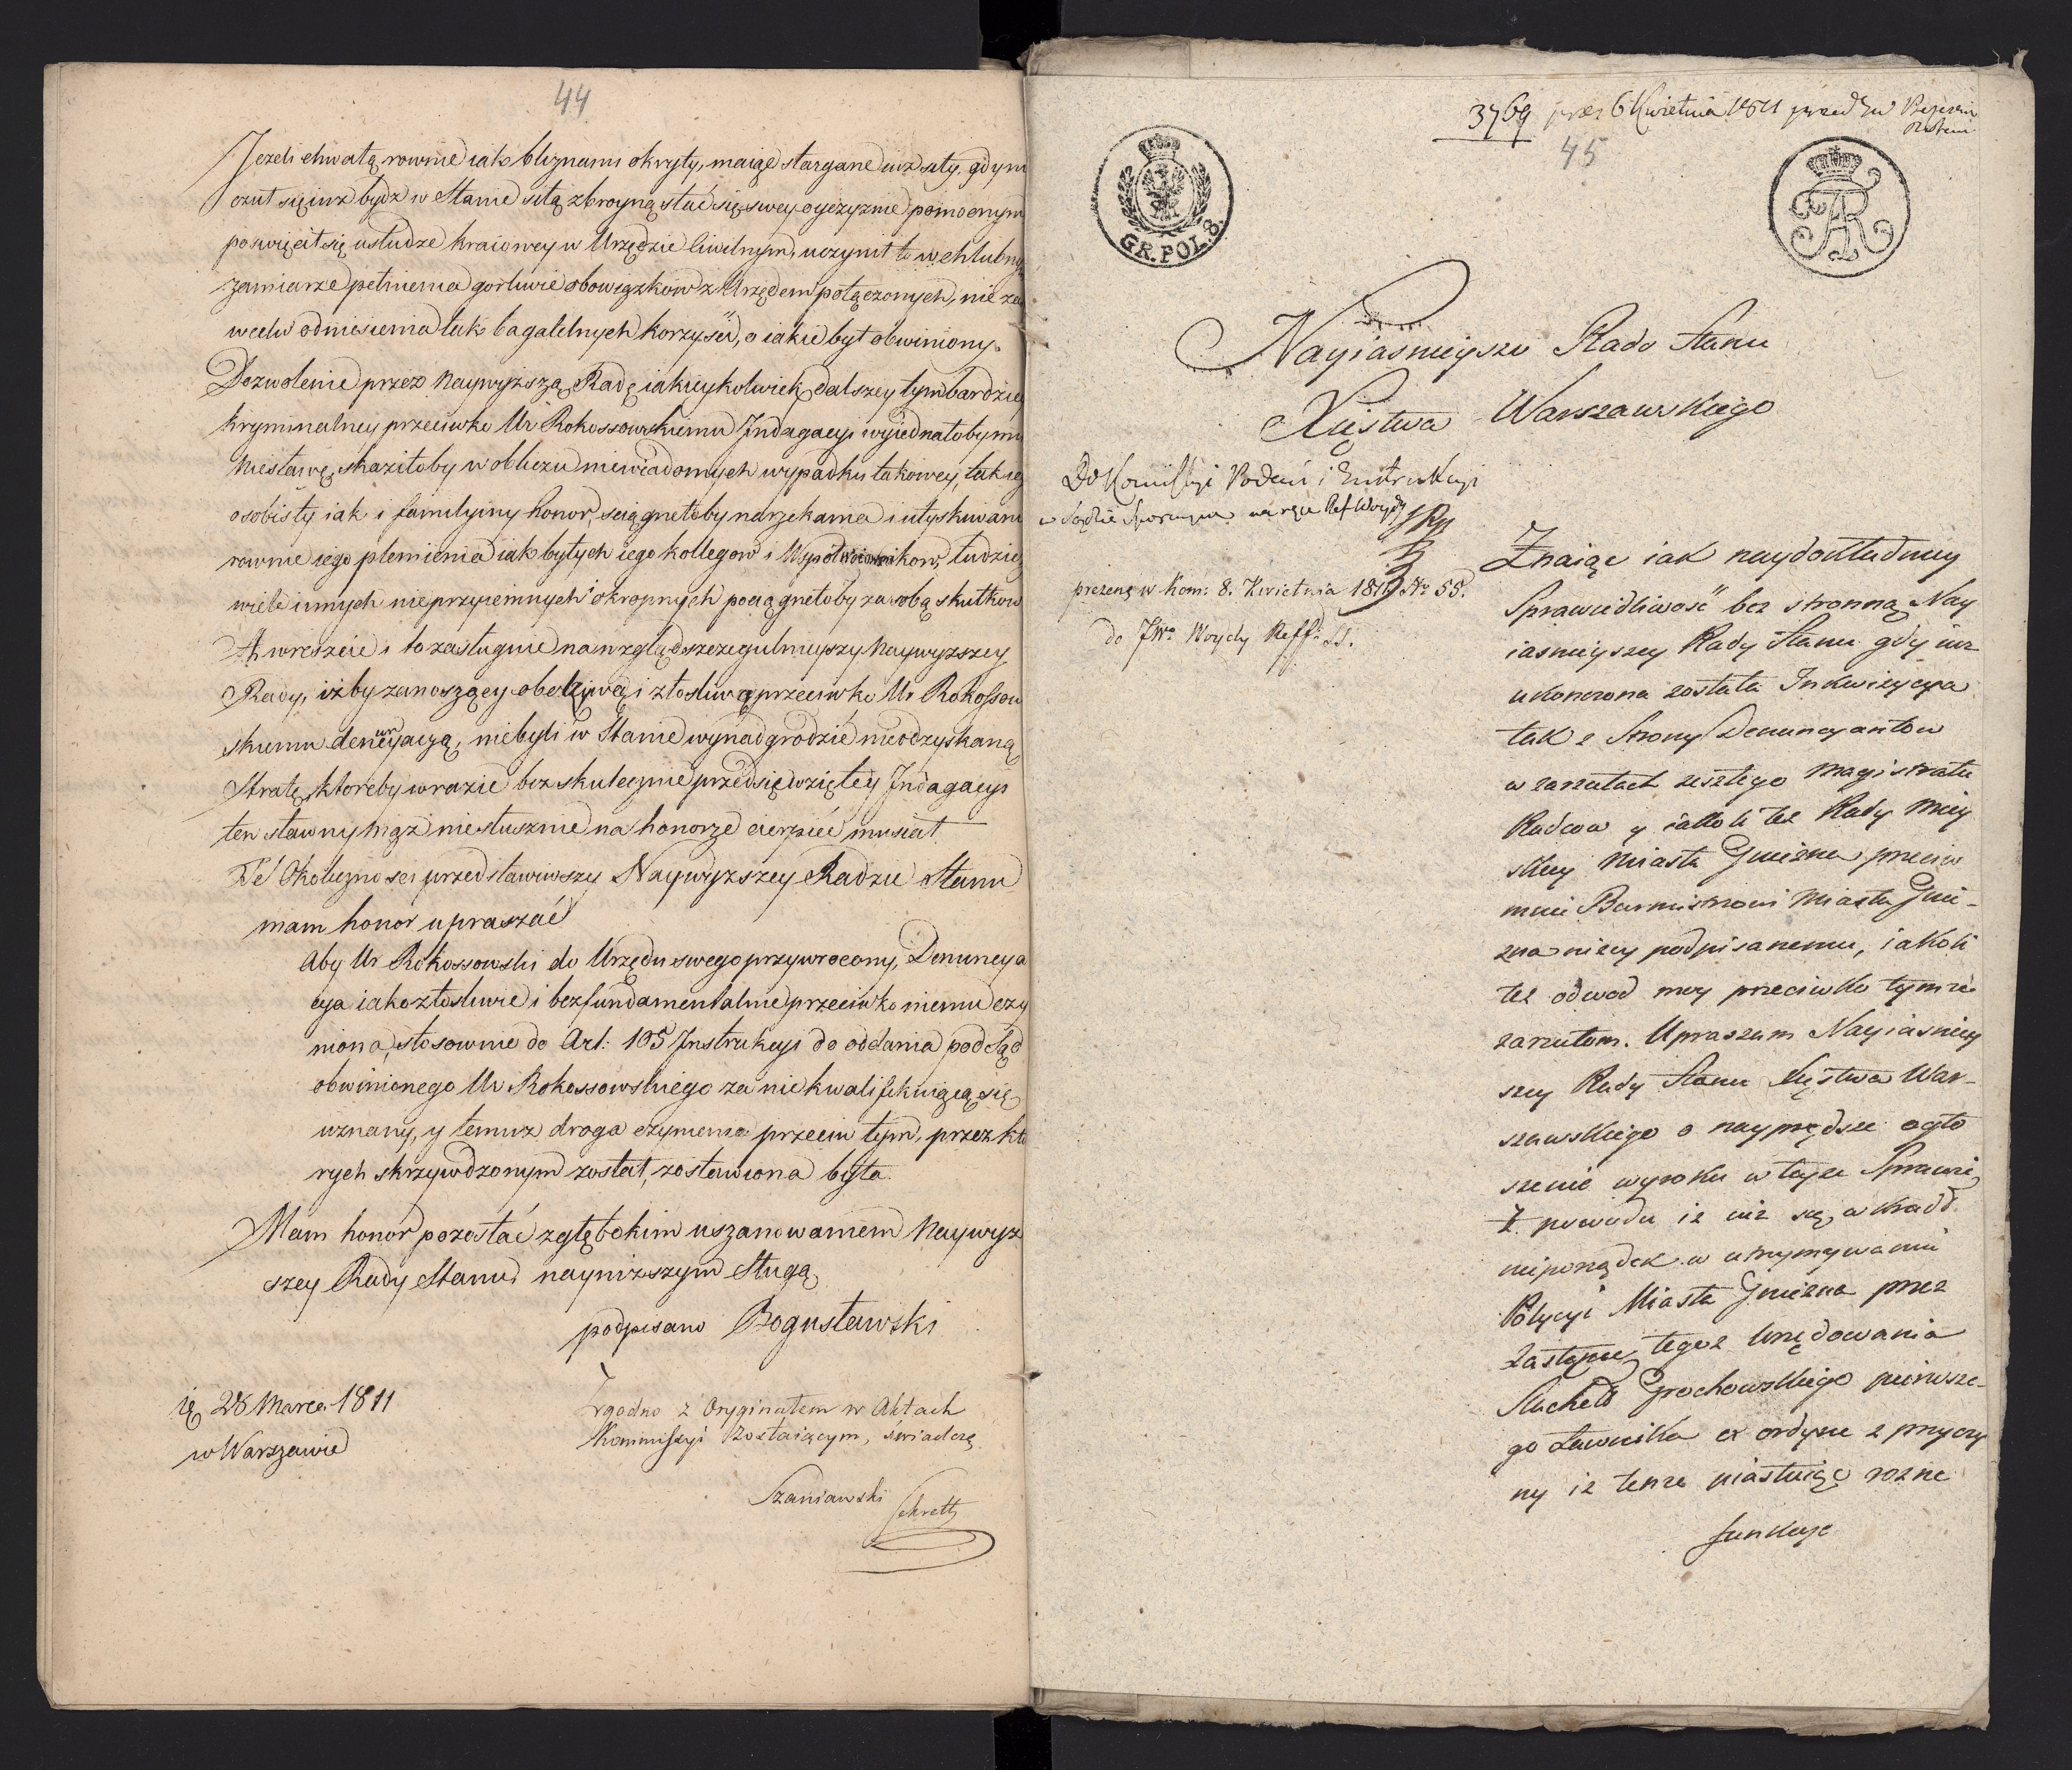 44
Jezeli chwałą rownie iak bliznami okryty, maiąc stargane iuz siły, gdy nie
czuł się iuz bydz w Stanie siłą zbroyną stać się swey oyczyznie pomocnym
poswięcił się usłudze kraiowey w Urzędzie Civilnym, uczynił to w chlubny
zamiarze pełnienia gorliwie obowiązkow z Urzędem połączonych, nie zas
w celu odniesienia tak bagatelnych korzyści, o iakie był obwiniony.
Dozwolenie przez Naywyższą Radę iakieykolwiek dalszey tym bardziey
kryminalney przeciwko Ur Rokossowskiemu Indagacyi wyiednałoby mu
Niesławę, skaziłoby w obliczu niewiadomych wypadku takowey, tak ieg
osobisty iak i familyiny honor, sciągnęłoby narzekania i utyskiwani
rownie iego plemienia iak byłych iego kollegow i Wspoł kow, tudziez
wiele innych nieprzyiemnych okropnych pociągnęłoby za sobą skutkow
A wreszcie i to zasługuie na wzgląd szczegulnieyszy Naywyzszey
Rady, iżby zanoszący obelżywą i złosliwą przeciwko Ur Rokossow
skiemu denuncyacyą, niebyli w Stanie wynadgrodzić nieodzyskaną
Stratę, ktoreby w razie bezskutecznie przedsięwziętey Indagacyi
ten sławny mąz niesłusznie na honorze cierpieć musiał.
Te Okoliczności przedstawiwszy Naywyzszey Radzie Stanu
mam honor upraszać
Aby Ur Rokossowski do Urzędu swego przywrocony, Denuncya
cya iako złosliwie i bezfundamentalnie przeciwko niemu czy
niona, stosownie do Art: 105 Instrukcyi do oddania pod Sąd
obwinionego Ur Rokossowskiego za niekwalifikuiącą się
uznany, y temuz droga czynienia przeciw tym, przez kto
rych skrzywdzonym został, zostawiona była.
Mam honor pozostać z głębokim uszanowaniem Naywyz
szey Rady Stanu nayniższym Sługą
podpisano Bogusławski
28 Marca 1811
w Warszawie
Zgodno z Oryginałem w Aktach
Kommissyi Zostaiącym, świadczę
Szaniawski Sekrett
3769 prez 6 Kwietnia 1811
45
GR. POL. 8.
Nayiasnieysza Rado Stanu
Xięstwa Warszawskiego
Do Komissyi Podań i Instrukcyi
w Sądzie Spornym na ręce Ref Woydy
prezent: w Kom: 8. Kwietnia 1811 No 55.
do JWo Woydy Reff: St.
Znaiąc iak naydokładniey
Sprawiedliwość bez stronną Nay
iasnieyszey Rady Stanu gdy iuz
ukonczona została Inkwizycya
tak z Strony Denuncyantow
w zarzutach zeszłego Magistratu
Radcow y iakoli tez Rady Miey
skiey Miasta Gniezna przeciw
mnie Burmistrzowi Miasta Gnie-
zna nizey podpisanemu, iakoli
tez odwod moy przeciwko tymze
zarzutom. Upraszam Nayiasniey
szey Rady Stanu Xięstwa War-
szawskiego o nayprędsze ogło
szenie wyroku w teyze Sprawie,
Z powodu iz iuz się wkradł
nieporządek w utrzymywaniu
Policyi Miasta Gniezna przez
zastępce tegoz Urzędowania
Szlachetk Grochowskiego pierwsze-
go Ławnika ex ordyne z przyczy
ny iz tenze piastuiąc rozne
funkcye